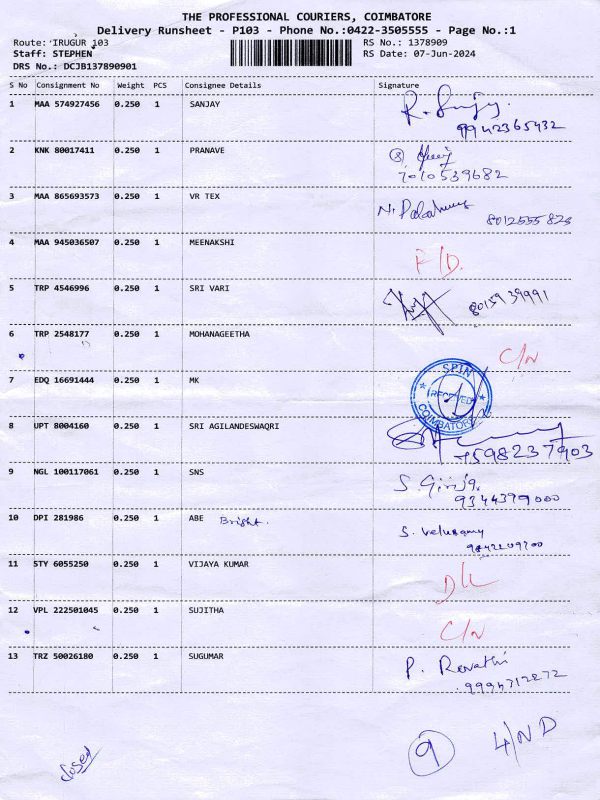 THE PROFESSIONAL COURIERS, COIMBATORE
Delivery Runsheet - P103 - Phone No.:0422-3505555 - Page No.:1
Route: IRUGUR 103 RS No.: 1378909
Staff: STEPHEN RS Date: 07-Jun-2024
DRS No.: DCJB137890901
S No Consignment No Weight PCS Consignee Details Signature
1 MAA 574927456 0.250 1 SANJAY
9942365432
2 KNK 80017411 0.250 1 PRANAVE
7010539682
3 MAA 865693573 0.250 1 VR TEX
8012555823
4 MAA 945036507 0.250 1 MEENAKSHI
F/D.
5 TRP 4546996 0.250 1 SRI VARI 8015939991
6 TRP 2548177 0.250 1 MOHANAGEETHA
C/N
SPIN
7 EDQ 16691444 0.250 1 MK
RECEIVED
COIMBATORE
8 UPT 8004160 0.250 1 SRI AGILANDESWAQRI
7598237903
9 NGL 100117061 0.250 1 SNS
S. Girija.
9344379000
10 DPI 281986 0.250 1 ABE Bright.
S. Velusamy
9842209700
11 STY 6055250 0.250 1 VIJAYA KUMAR
D/L
12 VPL 222501045 0.250 1 SUJITHA
C/N
13 TRZ 50026180 0.250 1 SUGUMAR
P. Revathi
9994712272
9 4/ND